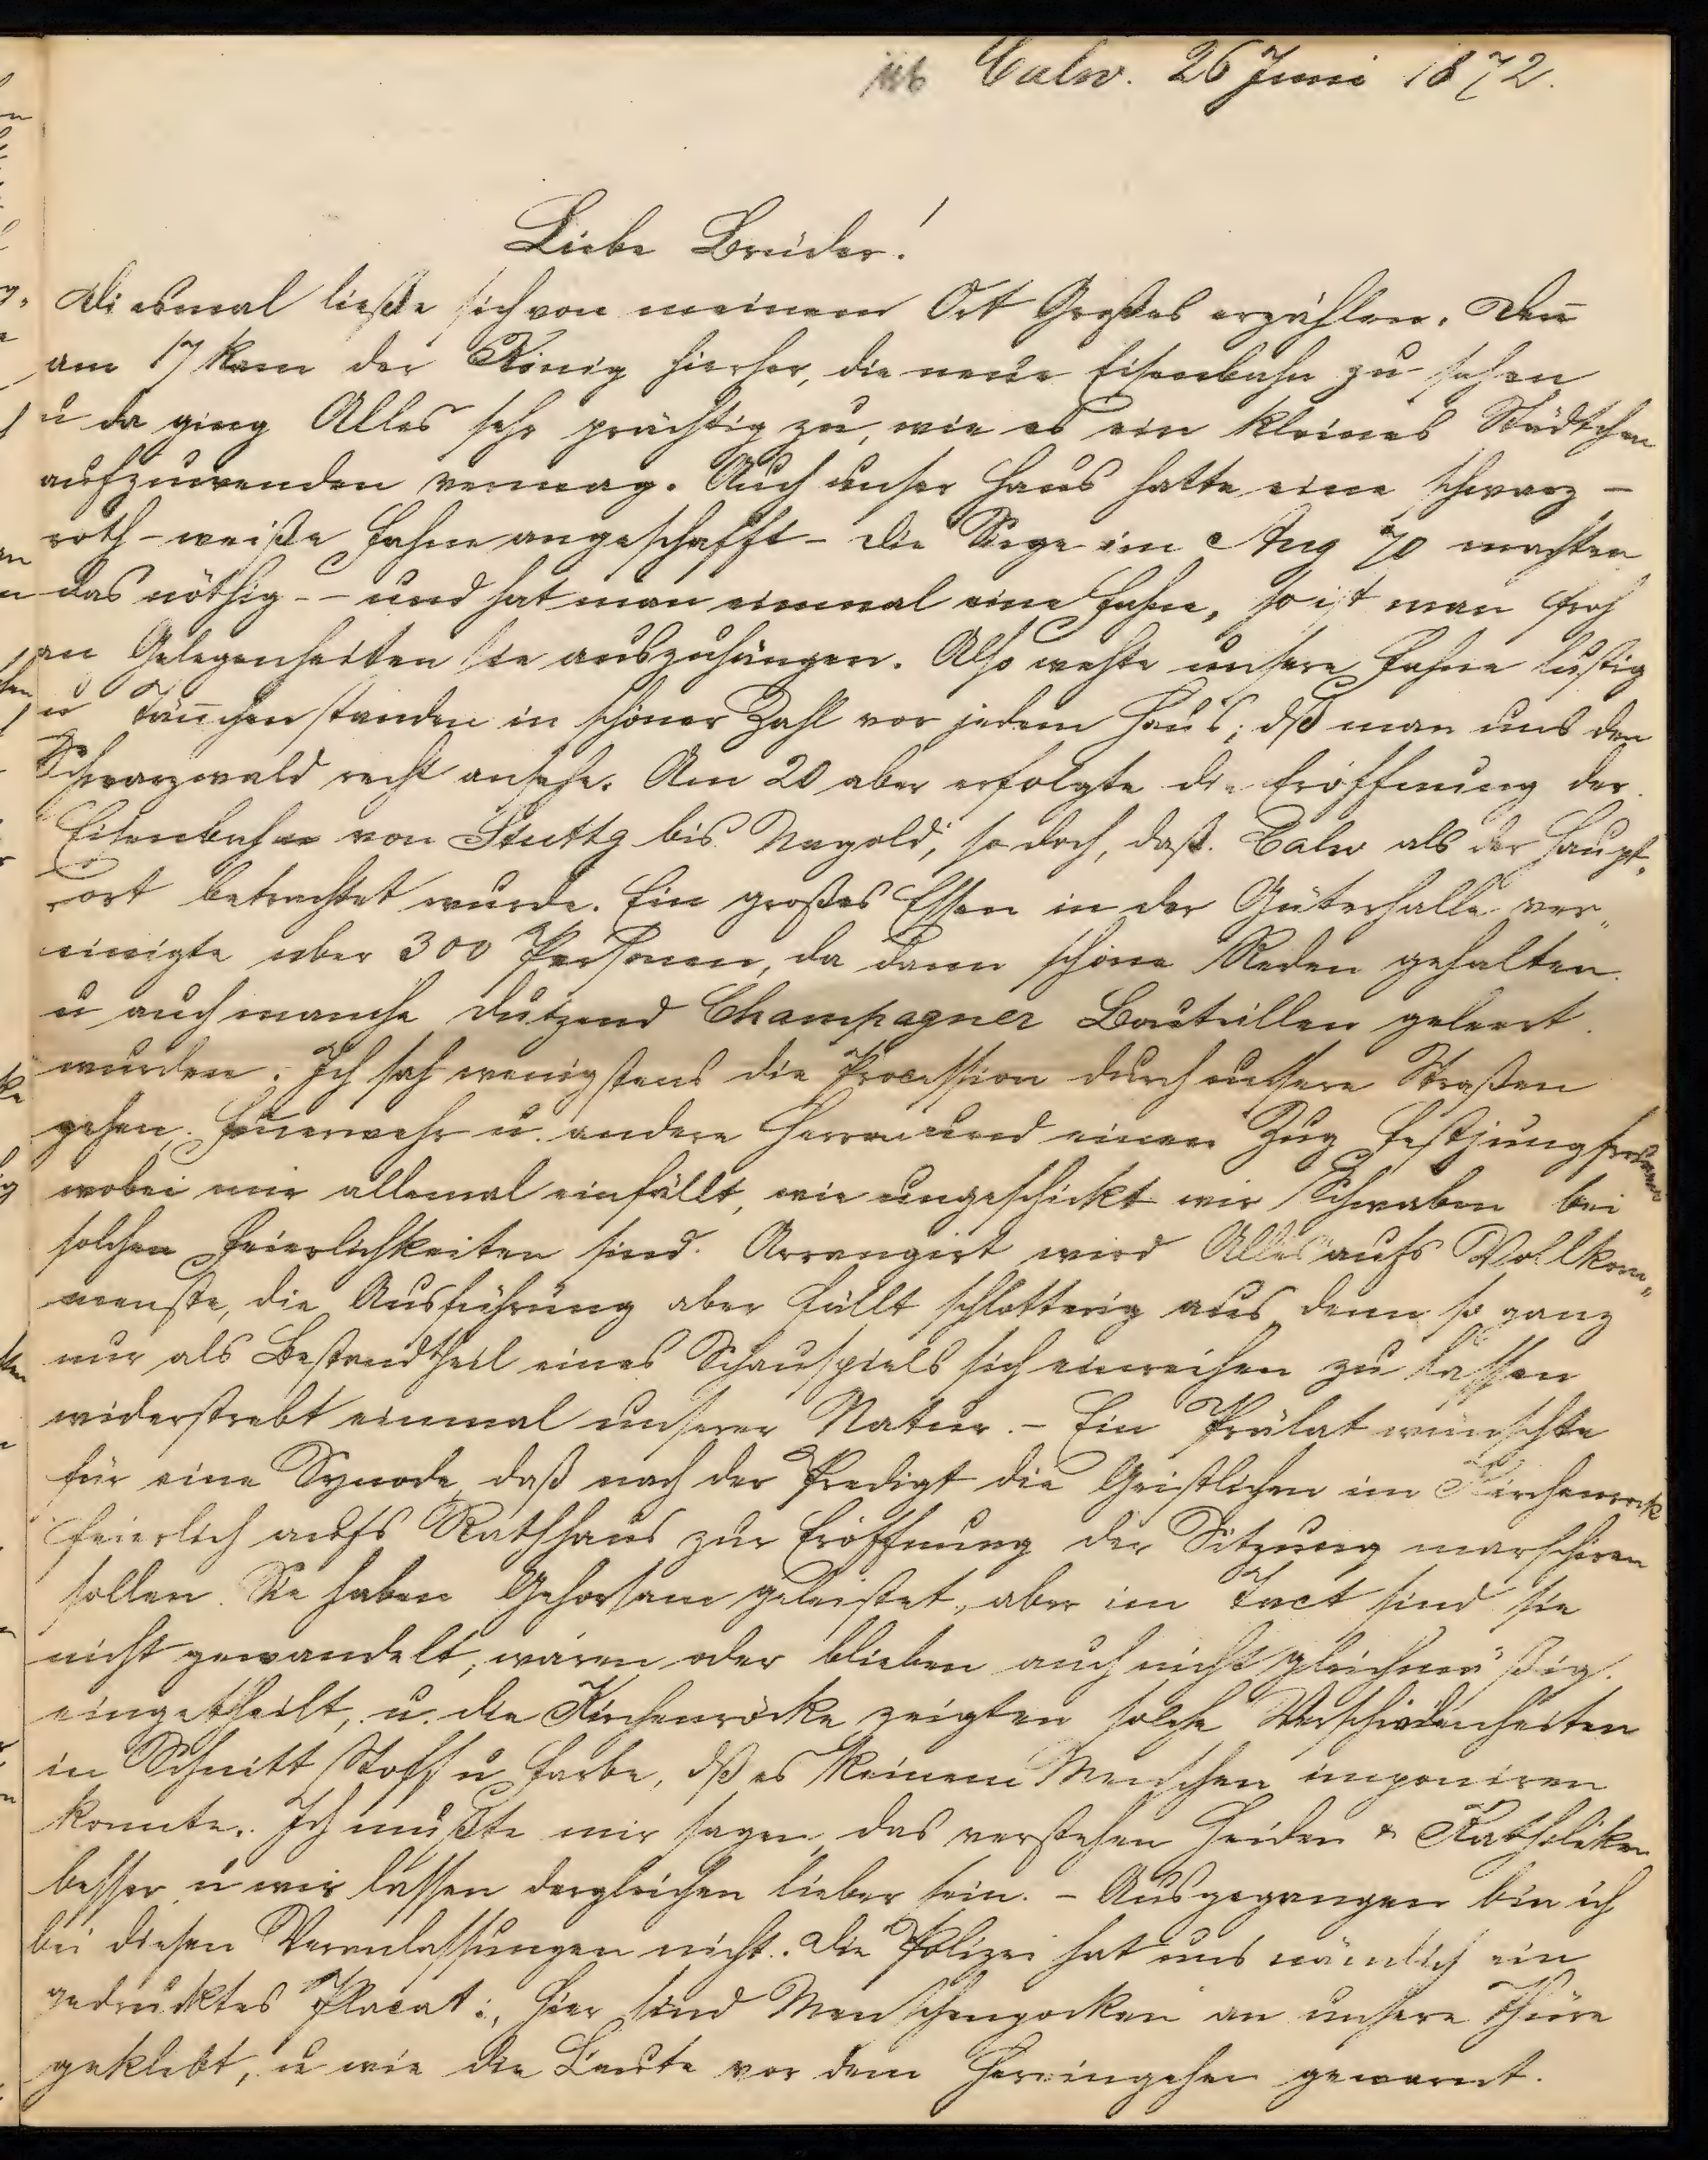 Calw. 26 Juni 1872.
Liebe Brüder!
Diesmal ließe sich von meinem Ort Großes erzählen. Deñ
am 17 kam der König hierher, die neue Eisenbahn zu sehen
u da ging Alles sehr prächtig zu, wie es ein kleines Städtchen
aufzuwenden vermag. Auch unser Haus hatte eine schwarz-
roth-weiße Fahne angeschafft - die Siege im Aug 70 machten
das nöthig - - und hat man einmal eine Fahne, so ist man froh
an Gelegenheiten sie auszuhängen. Also wehte unsere Fahne lustig
u Täñchen standen in schöner Zahl vor jedem Haus; dß man uns den
Schwarzwald recht ansehe. Am 20 aber erfolgte die Eröffnung der
Eisenbahn von Stuttg bis Nagold, so doch, daß Calw als der Haupt-
ort betrachtet wurde. Ein großes Essen in der Güterhalle ver-
einigte über 300 Personen, da dann schöne Reden gehalten
u auch manche Dutzend Champagner Bouteillen geleert
wurden. Ich sah wenigstens die Procession durch unsere Straßen
gehen, Feuerwehr u. andere Herren und einen Zug Festjungfrauen
wobei mir allemal einfällt, wie ungeschickt wir Schwaben bei
solchen Feierlichkeiten sind. Arrangirt wird Alles aufs Vollkom-
menste, die Ausführung aber fällt schlotterig aus, denn so ganz
nur als Bestandtheil eines Schauspiels sich einreihen zu lassen
widerstrebt einmal unserer Natur. - Ein Prälat wünschte
für eine Synode, daß nach der Predigt die Geistlichen im Kirchenrock
feierlich aufs Rathhaus zur Eröffnung der Sitzung marschiren
sollen. Sie haben Gehorsam geleistet, aber im Tact sind sie
nicht gewandelt, waren oder blieben auch nicht gleichmäßig
eingetheilt, u. die Kirchenröcke zeigten solche Verschiedenheiten
in Schnitt Stoff u Farbe, dß es keinem Menschen imponiren
konnte. Ich mußte mir sagen, das verstehen Heiden & Katholiken
besser u wir lassen dergleichen lieber sein. - Ausgegangen bin ich
bei diesen Veranlassungen nicht. Die Polizei hat uns nämlich ein
gedrucktes Placat: „Hier sind Menschenpocken an unsere Thüre
geklebt, u wie die Leute vor dem Hereingehen gewarnt.